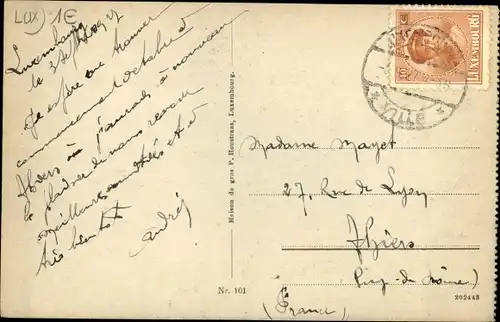 LUX) 1€
Luxembourg
le 3
J'espère me trouver
commencement octobre à
Thiers où j'aurais à nouveau
le plaisir de vous revoir
Meilleures amitiés et à
très bientôt
André
Maison de gros P. Houstraas, Luxembourg.
Nr. 101
10 C
LUXEMBOURG
Madame Mayet
27, Rue de Lyon
Thiers
(Puy-de-Dôme)
(France)
202445